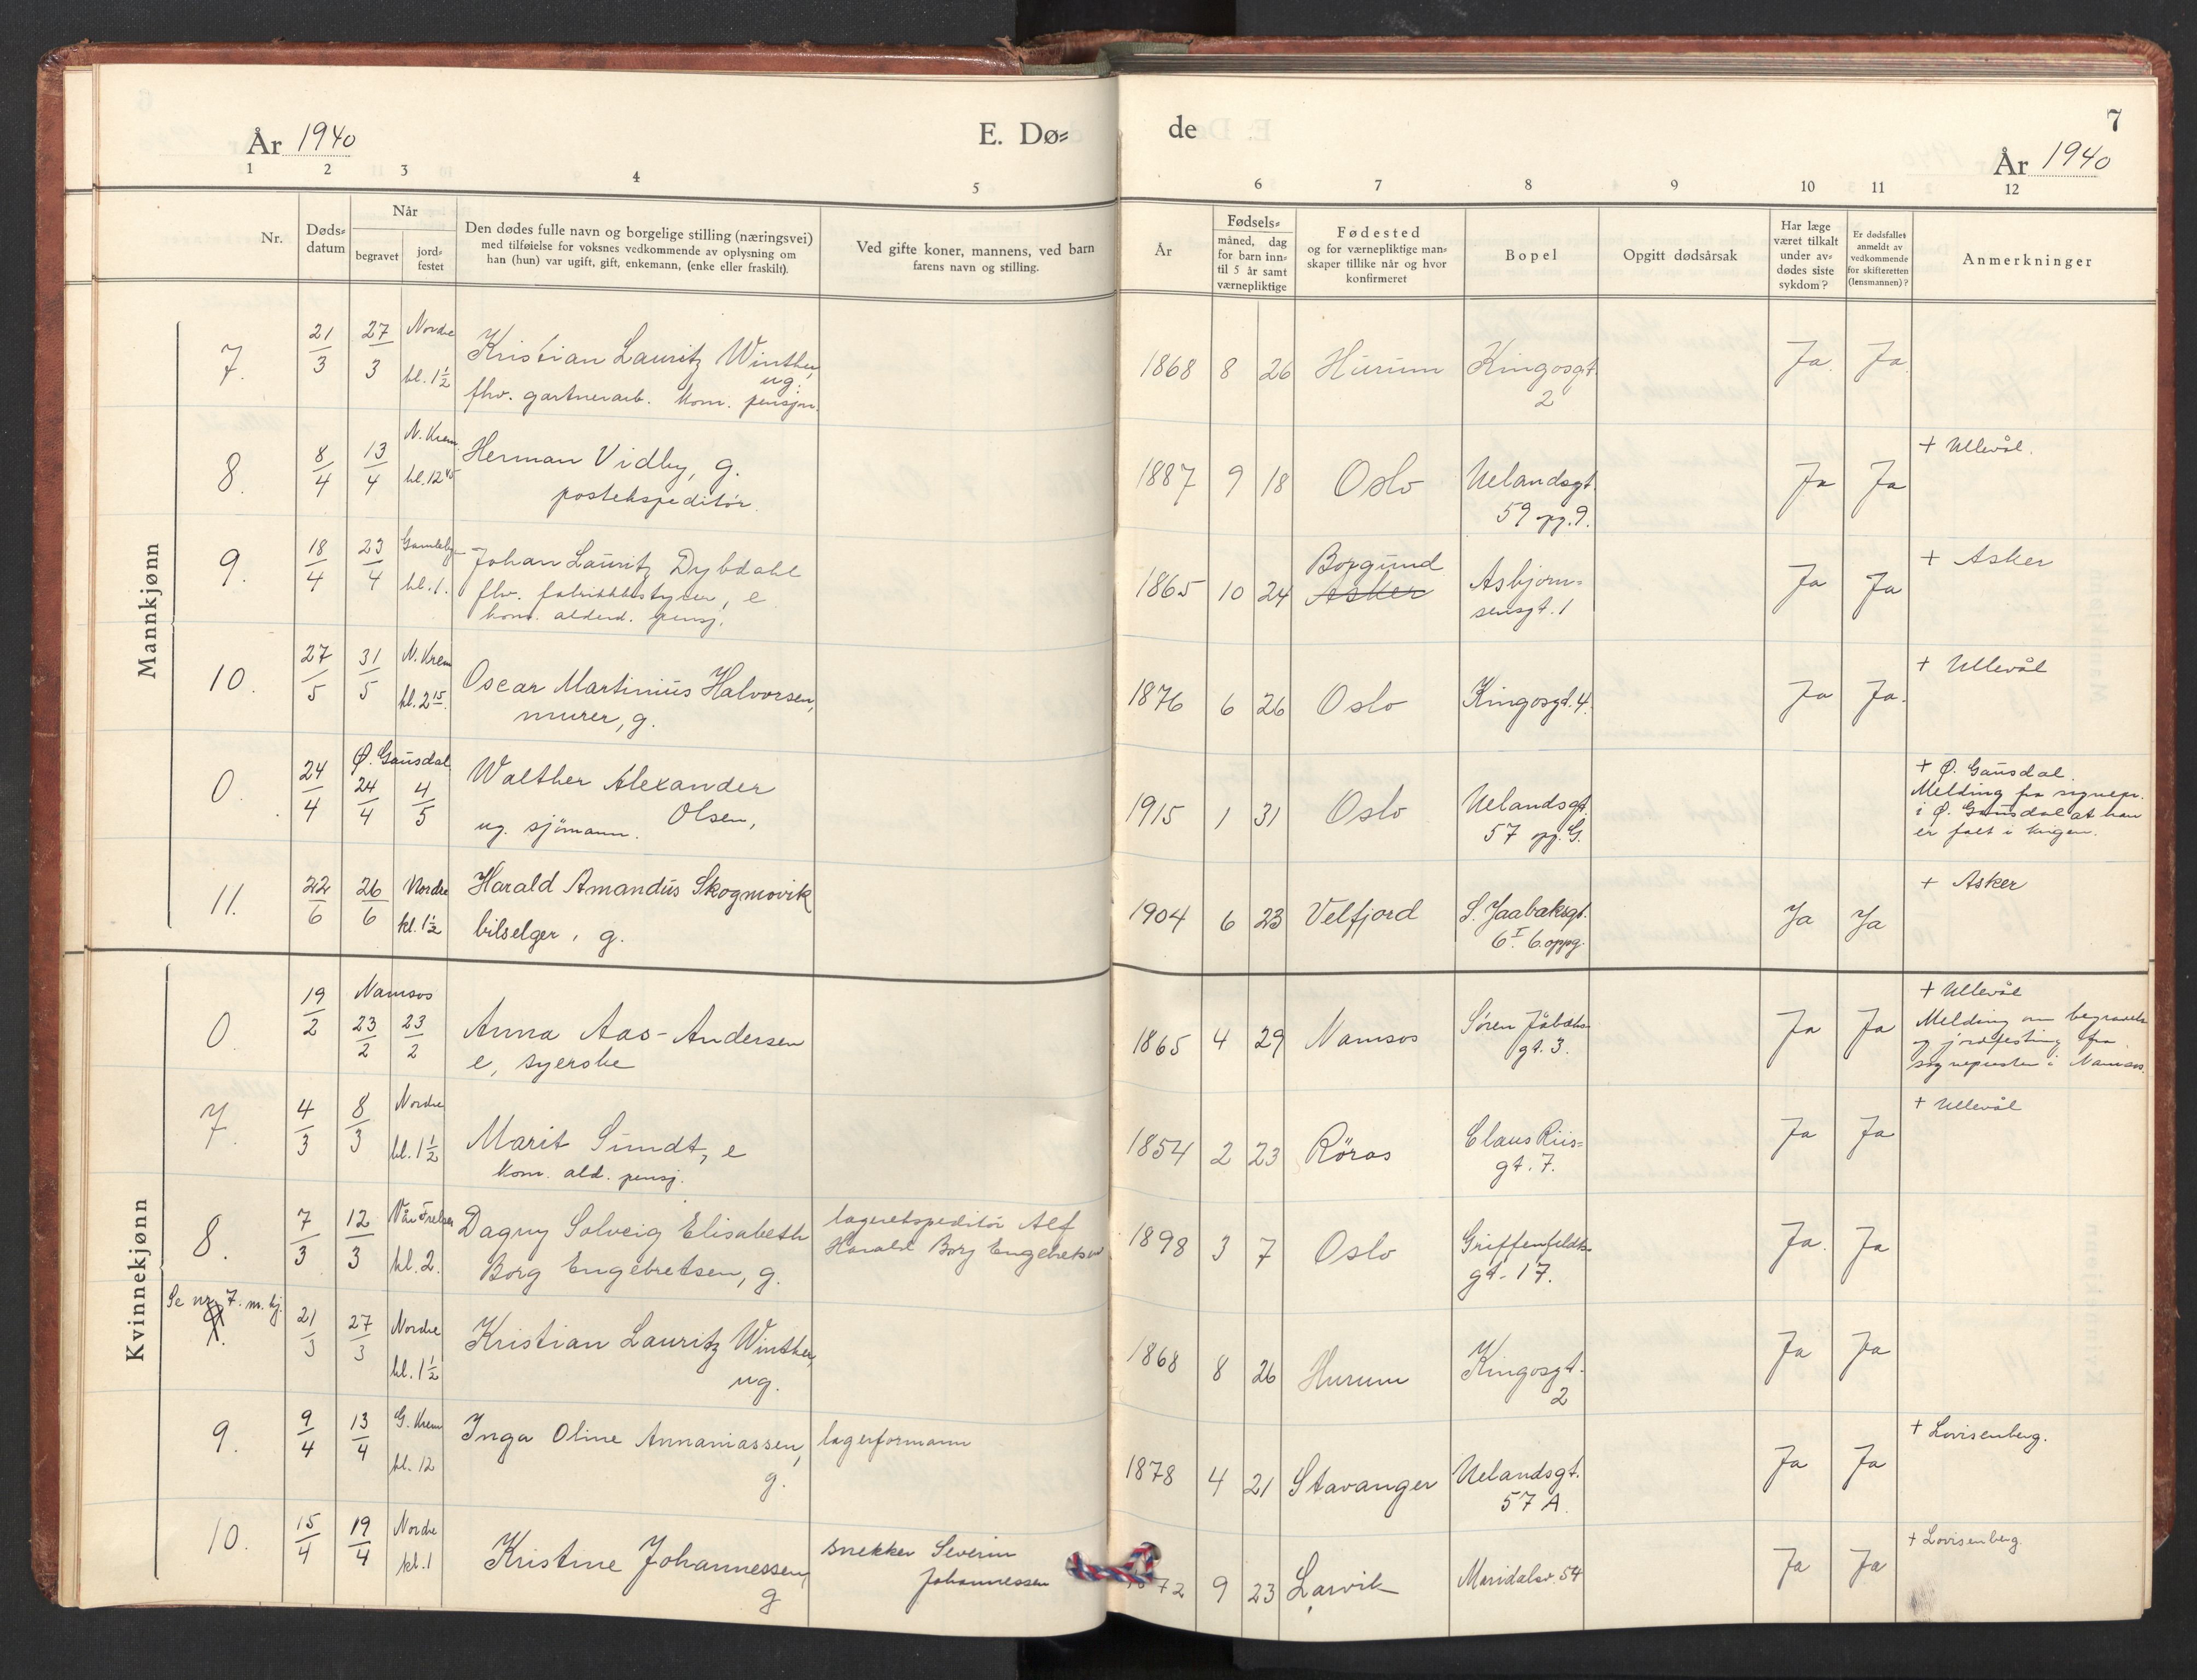 År 1940
E. Dø=
de
7
År 1940
1 2 3 4 5
6 7 8 9 10 11 12
Nr.
Døds=
datum
Når
begravet
jord=
festet
Den dødes fulle navn og borgelige stilling (næringsvei)
med tilføielse for voksnes vedkommende av oplysning om
han (hun) var ugift, gift, enkemann, (enke eller fraskilt).
Ved gifte koner, mannens, ved barn
farens navn og stilling.
År
Fødsels=
måned, dag
for barn inn=
til 5 år samt
værnepliktige
Fødested
og for værnepliktige man=
skaper tillike når og hvor
konfirmeret
Bopel
Opgitt dødsårsak
Har læge
været tilkalt
under av=
dødes siste
sykdom?
Er dødsfallet
anmeldt av
vedkommende
for skifteretten
(lensmannen)?
Anmerkninger
Mannkjønn
7. 21/3 27/3 Nordre kl. 1½
Kristian Lauritz Winther,
ug.
fhv. gartnerarb. kom. pensjon.
1868 8 26 Hurum Kingosgt.
2
Ja. Ja.
8. 8/4 13/4 N. Krem. kl. 12⁴⁵
Herman Vidby, g.
postekspeditør.
1887 9 18 Oslo Uelandsgt.
59 opg. 9.
Ja Ja + Ullevål.
9. 18/4 23/4 Gamleby kl. 1.
Johan Lauritz Dybdahl
fhv. fabrikkbestyrer, e
kom. alderd. pensj.
1865 10 24 Borgund
Asker
Asbjørn=
sensgt. 1
Ja Ja + Asker
10. 27/5 31/5 N. Krem kl. 2¹⁵.
Oscar Martinius Halvorsen,
murer, g.
1876 6 26 Oslo Kingosgt. 4.
Ja Ja. + Ullevål
0. 24/4 Ø. Gausdal 24/4 4/5
Walther Alexander
Olsen,
ug. sjømann.
1915 1 31 Oslo Uelandsgt.
57 opg. G.
+ Ø. Gausdal.
Melding fra sognepr.
i Ø. Gausdal at han
er falt i krigen.
11. 22/6 26/6 Nordre kl. 1½
Harald Amandus Skogmovik
bilselger, g.
1904 6 23 Velfjord S. Jaabæksgt.
6 I 6. oppg.
Ja Ja + Asker
Kvinnekjønn
0. 19/2 Namsos 23/2 23/2
Anna Aas-Andersen
e, syerske
1865 4 29 Namsos Søren Jåbæks=
gt. 3.
Ja Ja + Ullevål
Melding om begravels
og jordfesting fra
sognepresten i Namsos.
7. 4/3 8/3 Nordre kl. 1½
Marit Sundt, e
kom. ald. pensj.
1854 2 23 Röros Claus Riis=
gt. 7.
Ja Ja + Ullevål
8. 7/3 12/3 Vår Frelser kl. 2.
Dagny Solveig Elisabeth
Borg Engebretsen, g.
lagerekspeditör Alf
Harald Borg Engebretsen
1898 3 7 Oslo Griffenfeldts=
gt. 17.
Ja. Ja
Se nr. 7. m. kj.
21/3 27/3 Nordre kl. 1½
Kristian Lauritz Winther,
ug.
1868 8 26 Hurum Kingosgt.
2
Ja Ja
9. 9/4 13/4 G. Krem kl. 12
Inga Oline Annaniassen,
g.
lagerformann
1878 4 21 Stavanger Uelandsgt.
57 A.
Ja Ja + Lovisenberg.
10. 15/4 19/4 Nordre kl. 1
Kristine Johannessen,
g
snekker Severin
Johannessen
72 9 23 Larvik Maridalsv. 54
Ja Ja + Lovisenberg.